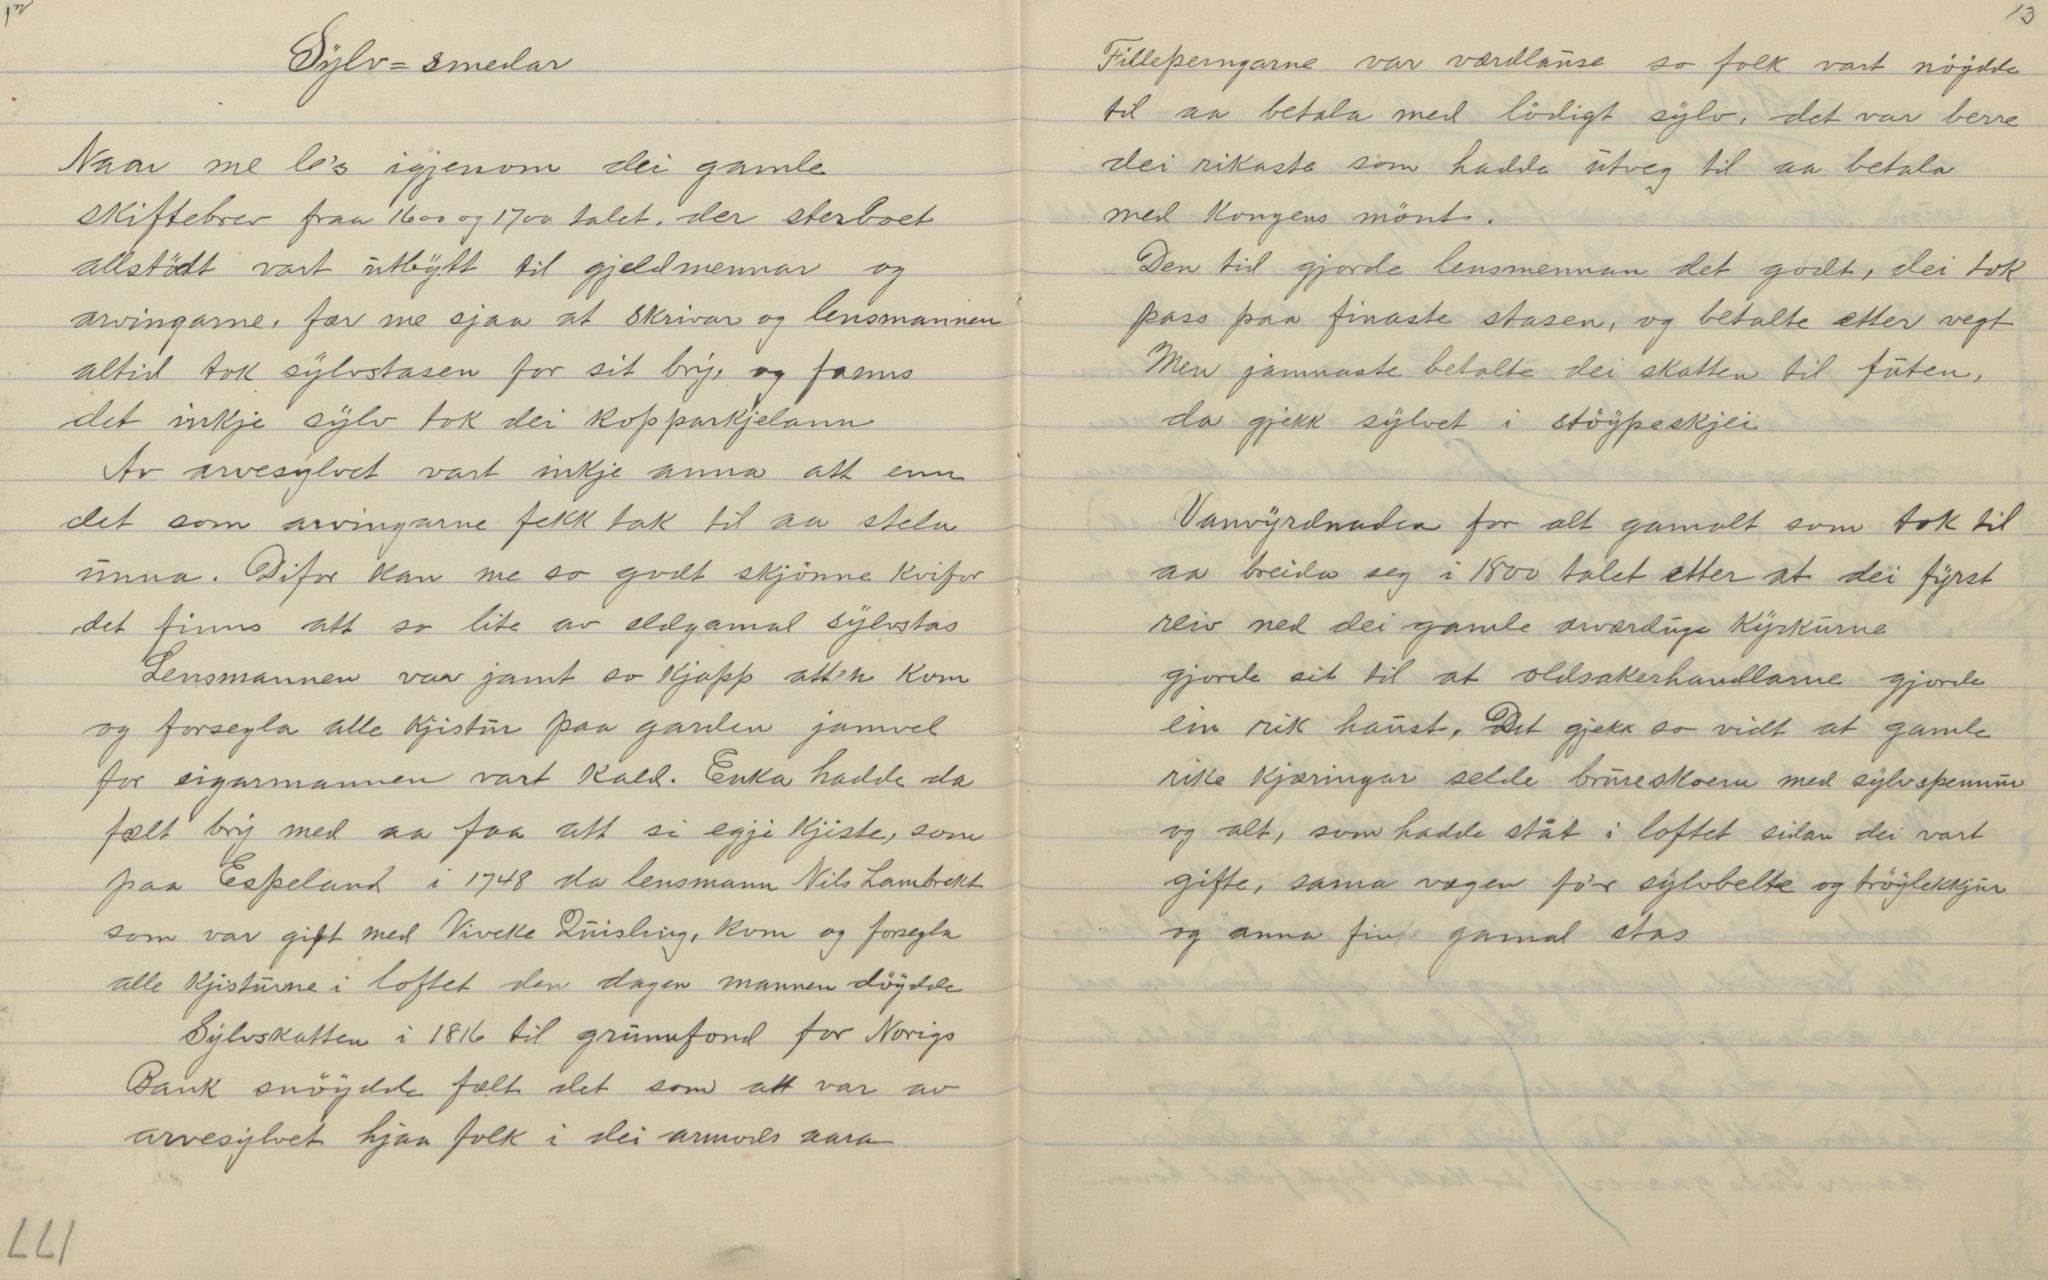 12
Sylv=smedar
Naar me le's igjenom dei gamle
skiftebrev fraa 1600 og 1700 talet, der sterboet
allstödt vart utbytt til gjeldmennar og
arvingarne, fær me sjaa at skrivar og lensmannen
altid tok sylvstasen for sit bry, og fanns
det inkje sylv tok dei kopparkjelann
Av arvesylvet vart inkje anna att enn
det som arvingarne fekk tak til aa stela
unna. Difor kan me so godt skjönne kvifor
det finns att so lite av eldgamal sylvstas
Lensmannen var jamt so kjapp att'n kom
og forsegla alle kjistur paa garden jamvel
for eigarmannen vart kald. Enka hadde da
fælt bry med aa faa att si egje kjiste, som
paa Espeland i 1748 da lensmann Nils Lambrekt
som var gift med Viveke Quisling, kom og forsegla
alle kjisturne i loftet den dagen mannen döydde
Sylvskatten i 1816 til grunnfond for Norigs
Bank snöydde fælt det som att var av
arvesylvet hjaa folk i dei armods aara
177
13
Filleperngarne var værdlause so folk vart nöydde
til aa betala med lödigt sylv, det var berre
dei rikaste som hadde utveg til aa betala
med Kongens mönt.
Den tid gjorde lensmennan det godt, dei tok
pass paa finaste stasen, og betalte etter vegt
Men jamnaste betalte dei skatten til futen,
da gjekk sylvet i stöypeskjei
Vanvyrdnaden for alt gamalt som tok til
aa breida seg i 1800 talet etter at dei fyrst
reiv ned dei gamle ærværduge kyrkurne
gjorde sit til at oldsakerhandlarne gjorde
ein rik haust. Det gjekk so vidt at gamle
rike kjæringar selde brureskoern med sylvspennur
og alt, som hadde ståt i loftet sidan dei vart
gifte, sama vægen fo'r sylvbelte og tröylekkjur
og anna fin gamal stas